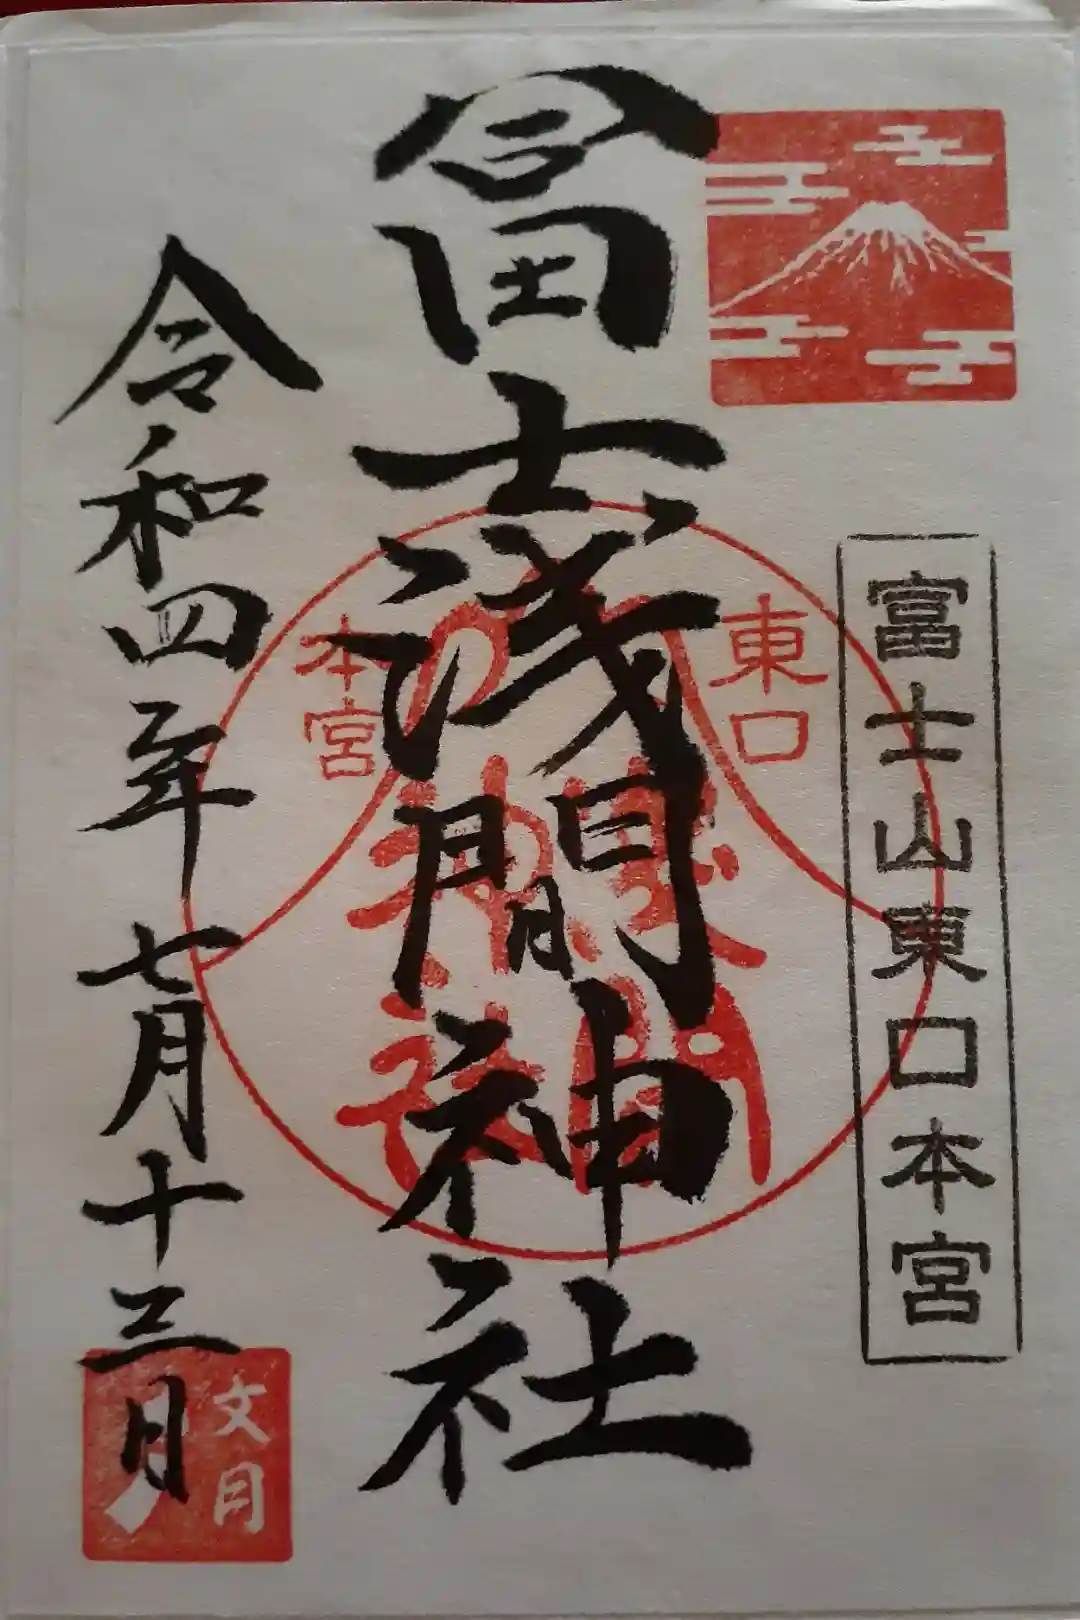 富士山東口本宮
冨士浅間神社
東口
本宮
令和四年 七月十三日
文月